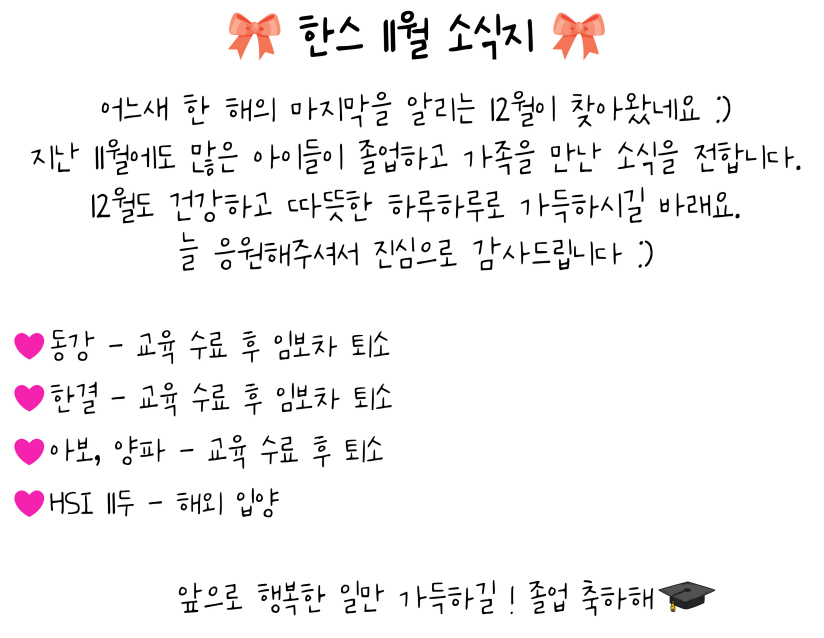 한스 11월 소식지
어느새 한 해의 마지막을 알리는 12월이 찾아왔네요 :)
지난 11월에도 많은 아이들이 졸업하고 가족을 만난 소식을 전합니다.
12월도 건강하고 따뜻한 하루하루로 가득하시길 바래요.
늘 응원해주셔서 진심으로 감사드립니다 :)
동강 - 교육 수료 후 임보차 퇴소
한결 - 교육 수료 후 임보차 퇴소
아보, 양파 - 교육 수료 후 퇴소
HSI 11두 - 해외 입양
앞으로 행복한 일만 가득하길 ! 졸업 축하해